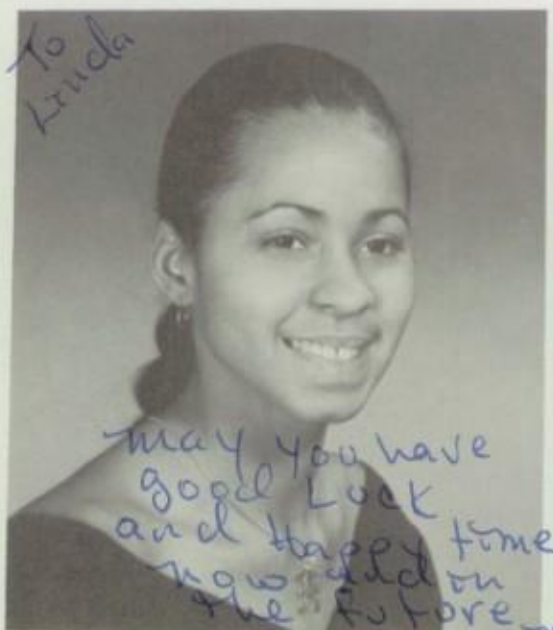 To
Linda
may you have
good Luck
and Happy time
now and in
the future